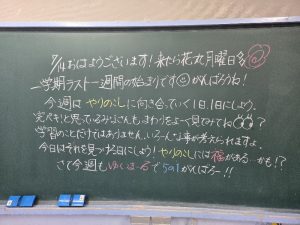 7/14 おはようございます！来たら花丸月曜日多
一学期ラスト一週間の始まりです がんばろうね！
今週は やりのこしに向き合っていく1日、1日にしよう。
完ペキ！と思っているみなさんも、まわりをよーく見てみて
学習のことだけではありません。いろーんな事が考えられますよ。
今日はそれを見つける日にしよう！やりのこしには福がある…かも!?
さて今週も ゆくはーるで5の1がんばろー!!